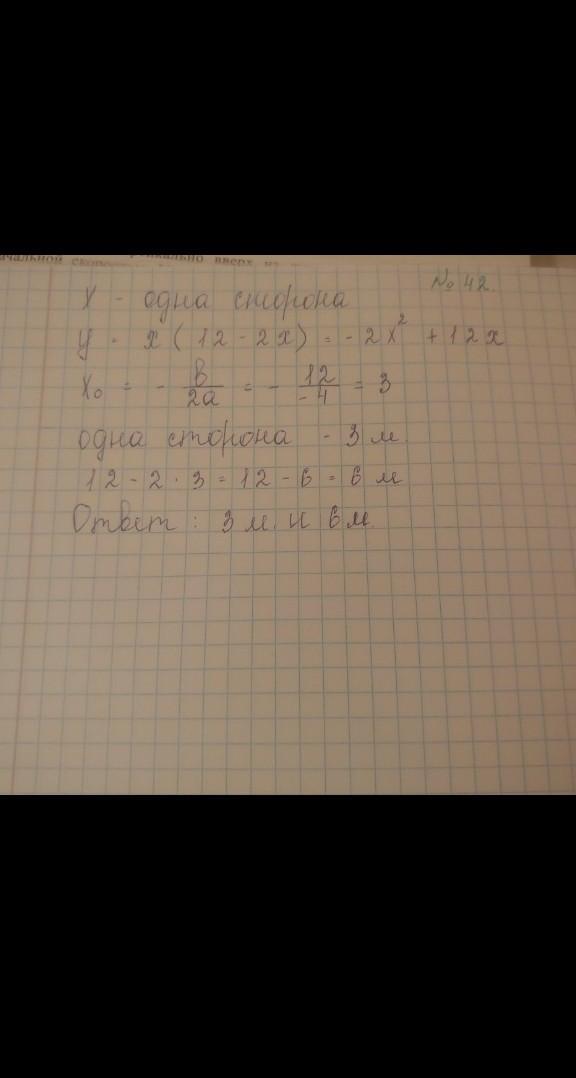 ачальной скорост
ртикально вверх из
№ 42.
X - одна сторона
y = x (12 - 2x) = -2x² + 12x
x₀ = - в/2а = - 12/-4 = 3
одна сторона - 3 м.
12 - 2 · 3 = 12 - 6 = 6 м
Ответ : 3 м. и 6 м